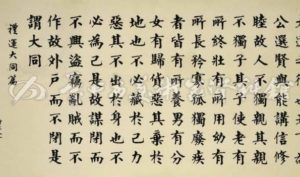 公選賢與能講信修
睦故人不獨親其親
不獨子其子使老有
所終壯有所用幼有
所長矜寡孤獨癈疾
者皆有所養男有分
女有歸貨惡其棄於
地也不必藏於己力
惡其不出於身也不
必為己是故謀閉而
不興盜竊亂賊而不
作故外戶而不閉是
謂大同
禮運大同篇